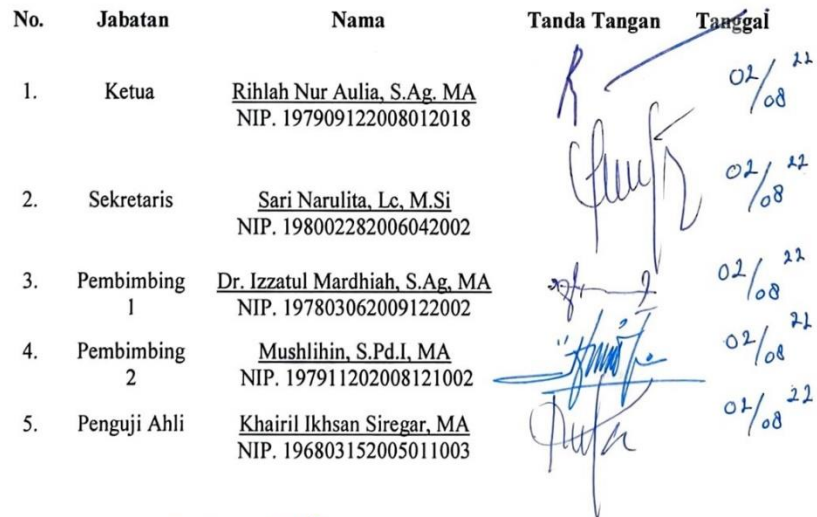 No. Jabatan Nama Tanda Tangan Tanggal
1. Ketua Rihlah Nur Aulia, S.Ag. MA 02/08 22
NIP. 197909122008012018
2. Sekretaris Sari Narulita, Lc, M.Si 02/08 22
NIP. 198002282006042002
3. Pembimbing 1 Dr. Izzatul Mardhiah, S.Ag, MA 02/08 22
NIP. 197803062009122002
4. Pembimbing 2 Mushlihin, S.Pd.I, MA 02/08 22
NIP. 197911202008121002
5. Penguji Ahli Khairil Ikhsan Siregar, MA 02/08 22
NIP. 196803152005011003